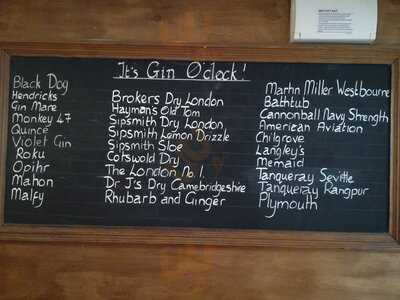 It's Gin O'clock!
Black Dog
Hendricks
Gin Mare
Monkey 47
Quince
Violet Gin
Roku
Opihr
Mahon
Malfy
Brokers Dry London
Hayman's Old Tom
Sipsmith Dry London
Sipsmith Lemon Drizzle
Sipsmith Sloe
Cotswold Dry
The London No. 1.
Dr J's Dry Camebridgeshire
Rhubarb and Ginger
Martin Miller Westbourne
Bathtub
Cannonball Navy Strength
American Aviation
Chilgrove
Langley's
Memaid
Tanqueray Seville
Tanqueray Rangpur
Plymouth